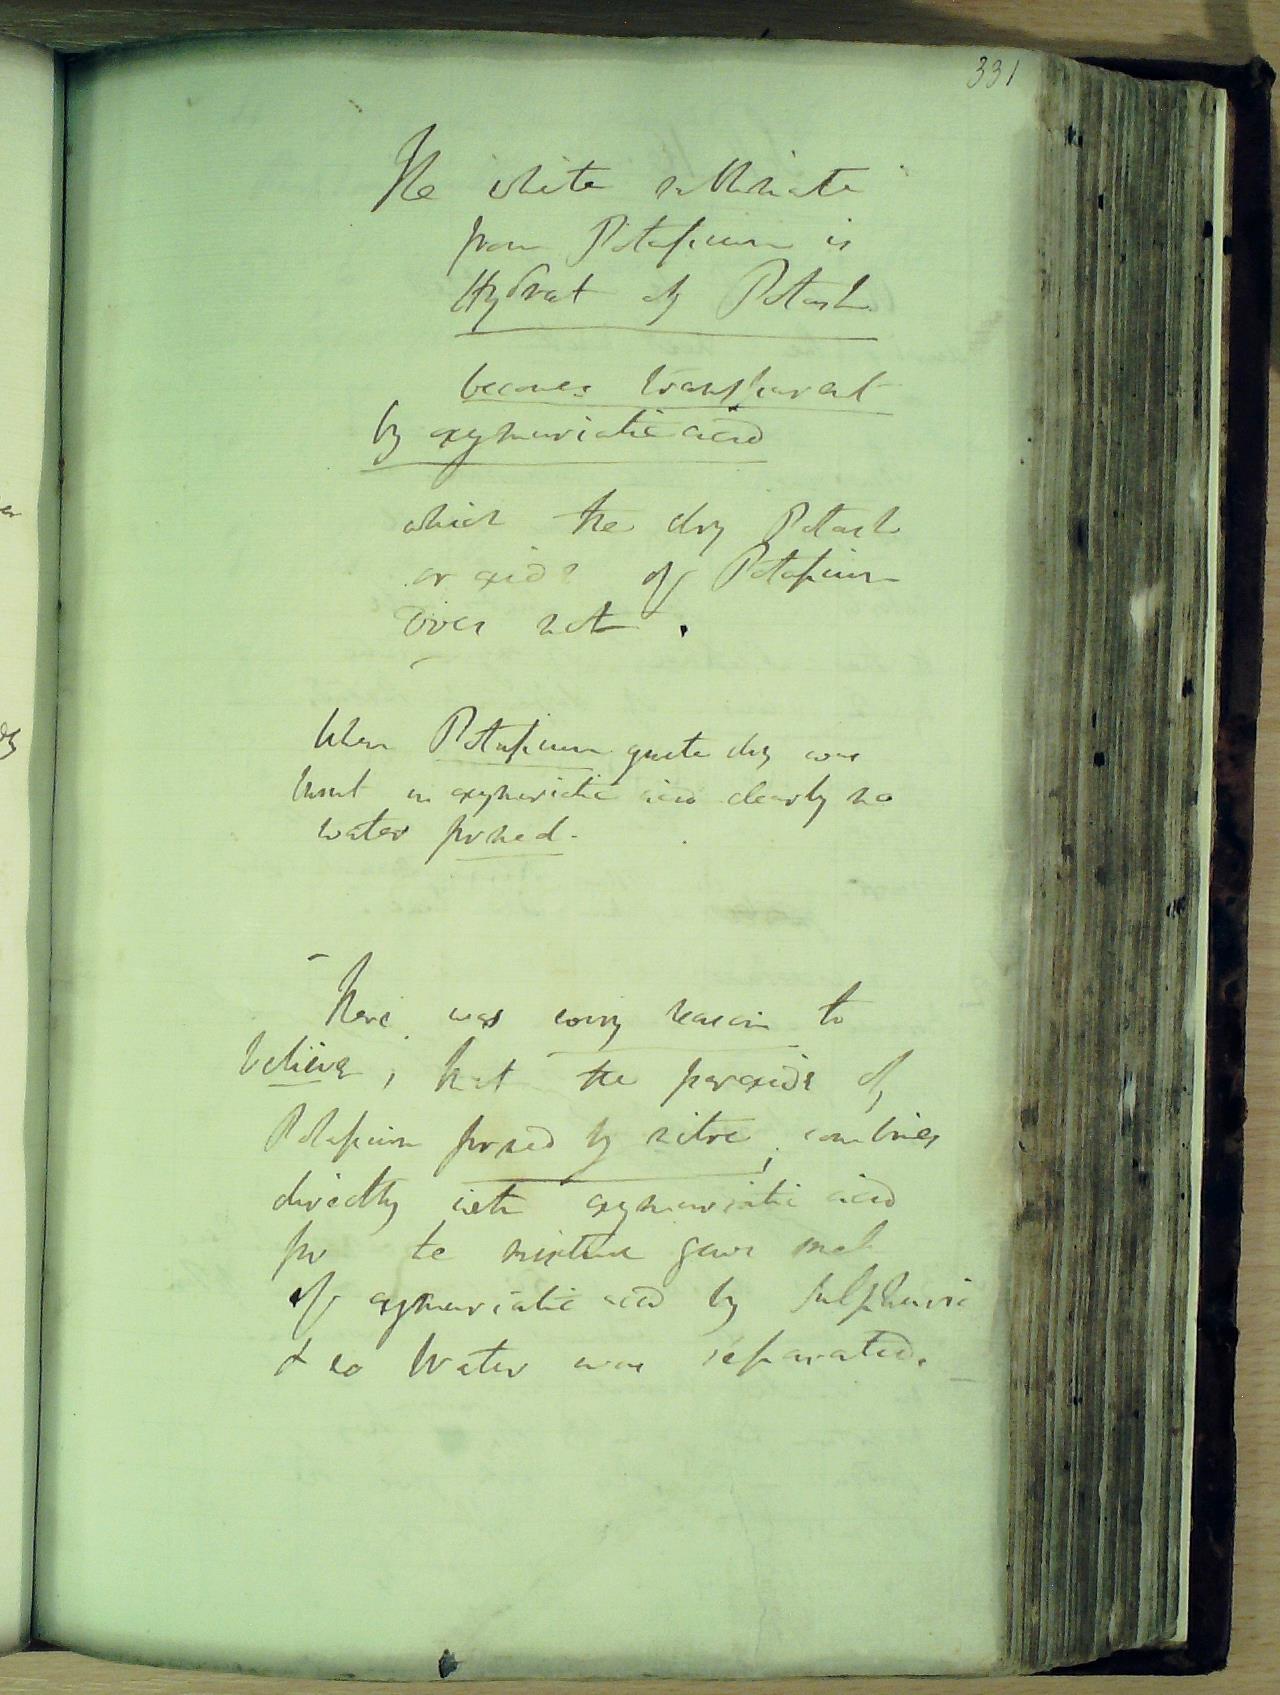 331
The white sublimate
from Potassium is
Hydrat of Potash
becomes transparent
by oxymuriatic acid
which the dry Potash
or oxide of Potassium
does not.
When Potassium quite dry was
burnt in oxymuriatic acid clearly no
water formed.
There was every reason to
believe, that the peroxide of
Potassium formed by nitre, combines
directly with oxymuriatic acid
for the mixture gave smell
of oxymuriatic acid by Sulphuric
& no Water was separated.